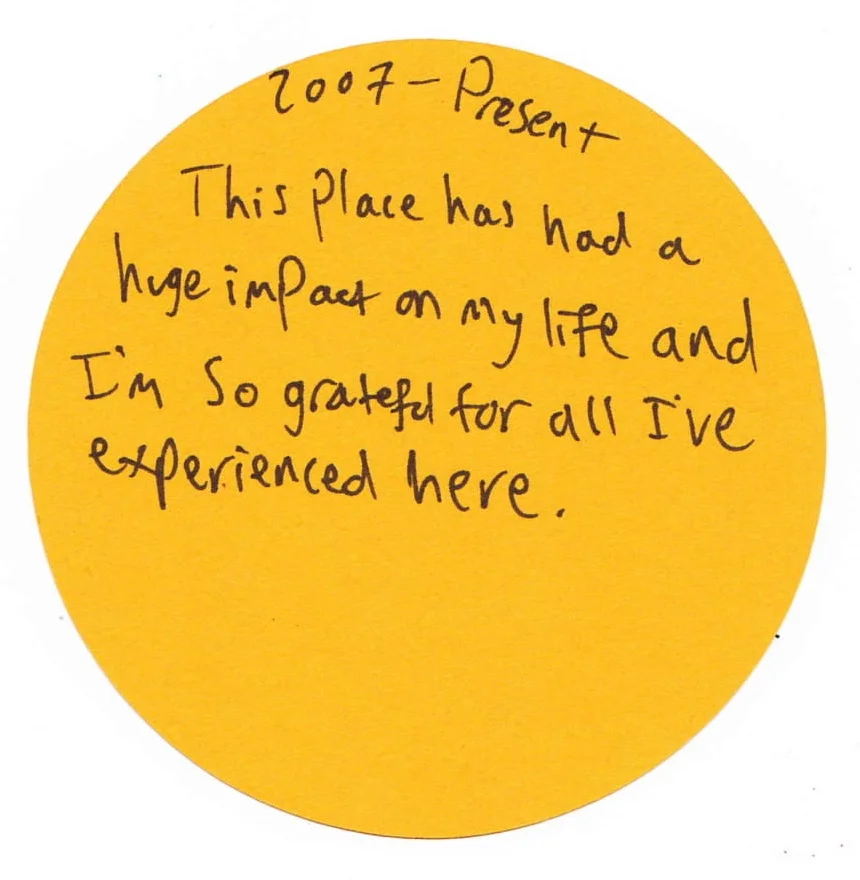 2007 - Present
This place has had a
huge impact on my life and
I'm so grateful for all I've
experienced here.